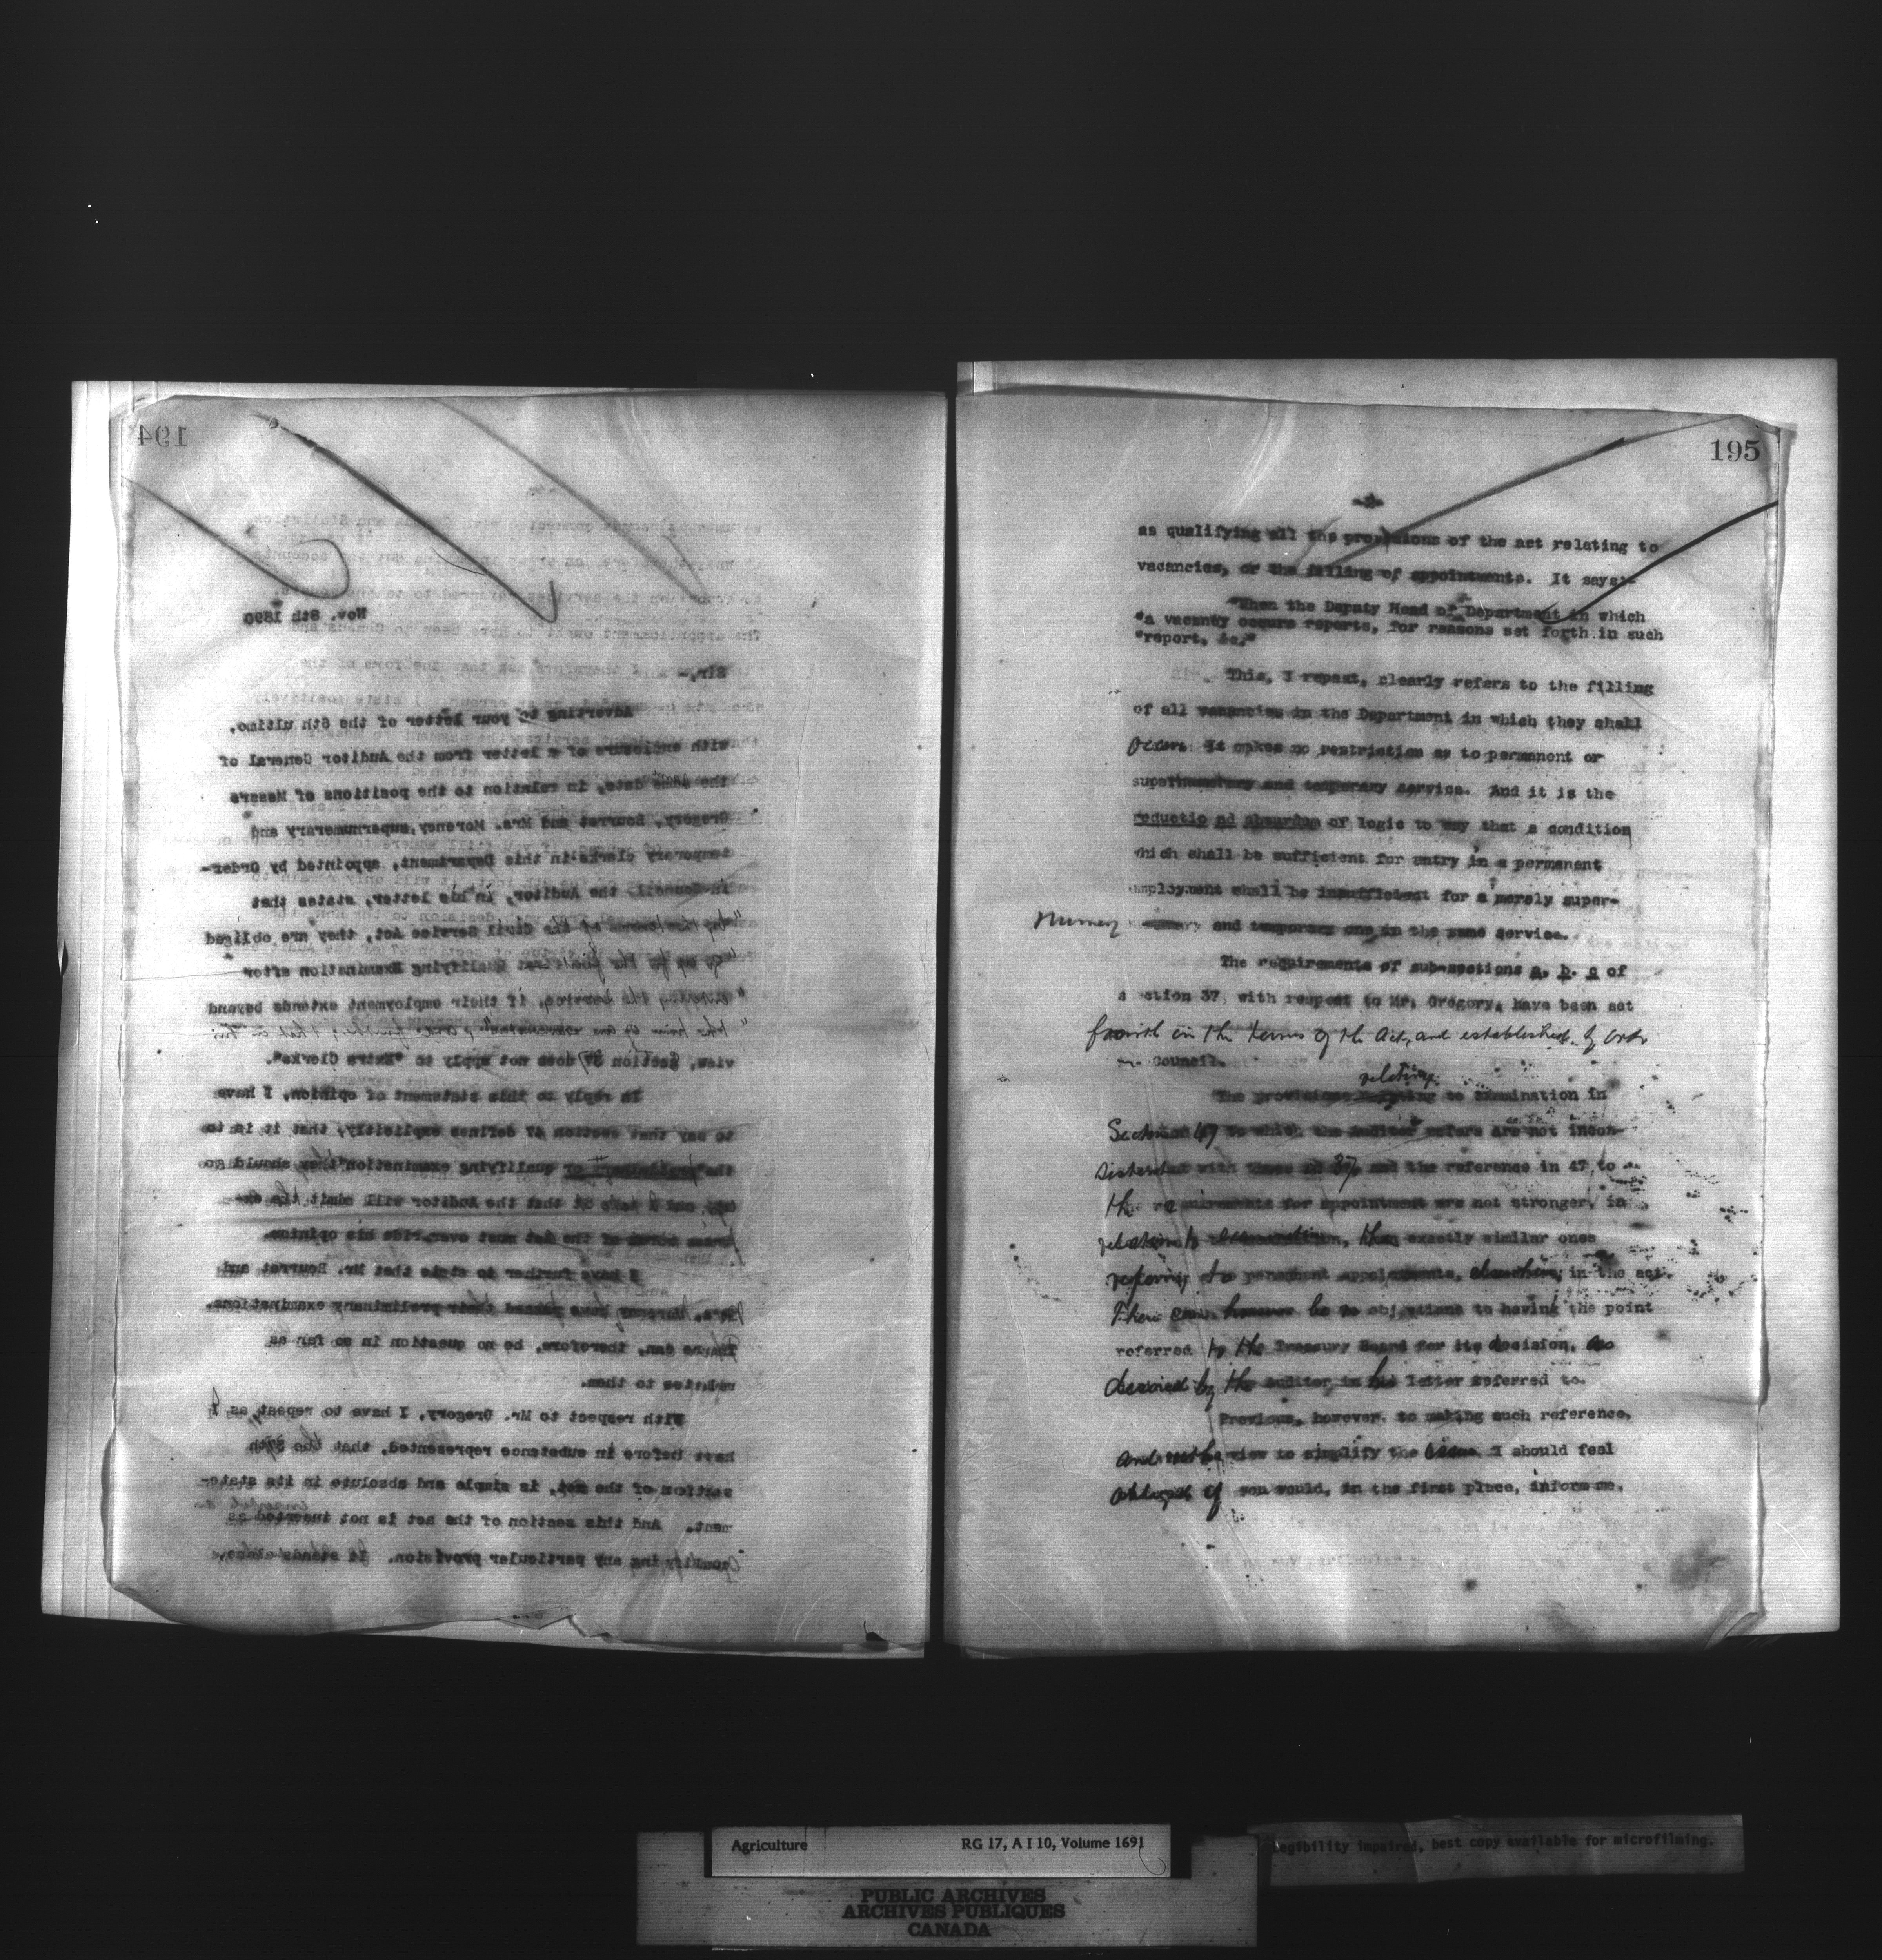 194
Nov. 8th 1890
Sir,-
Adverting to your letter of the 6th ultimo,
with enclosure of a letter from the Auditor General of
the same date, in relation to the positions of Messrs
Gregory, Bourret and Mrs. Morency, supernumerary and
temporary clerks in this Department, appointed by Order-
in-Council, the Auditor, in his letter, states that
"by the terms of the Civil Service Act, they are obliged
"to go up for the first Qualifying Examination after
"entering the service, if their employment extends beyond
"the time of an examination" and further, that in his
view, section 37 does not apply to "Extra Clerks".
In reply to this statement of opinion, I have
to say that section 47 defines explicitly, that it is to
the "preliminary or qualifying examination" they should go
up, and that the Auditor will admit the ex-
press terms of the Act must over-ride his opinion.
I have further to state that Mr. Bourret and
Mrs. Morency have passed their preliminary examinations.
There can, therefore, be no question in so far as
relates to them.
With respect to Mr. Gregory, I have to repeat, as I
have before in substance represented, that the 37th
section of the Act, is simple and absolute in its state-
ment. And this section of the act is not inserted as
qualifying any particular provision. It stands alone,
195
as qualifying all the provisions of the act relating to
vacancies, or the filling of appointments. It says:-
"When the Deputy Head of Department in which
"a vacancy occurs reports, for reasons set forth in such
"report, &c."
This, I repeat, clearly refers to the filling
of all vacancies in the Department in which they shall
occur. It makes no restriction as to permanent or
supernumerary and temporary service. And it is the
reductio ad absurdum of logic to say that a condition
which shall be sufficient for entry in a permanent
employment shall be insufficient for a merely super-
numerary and temporary one in the same service.
The requirements of sub-sections a. b. c of
section 37, with respect to Mr. Gregory, have been set
fourth in the terms of the Act, and established by Order
in Council.
relating
The provisions to examination in
Section 47 to which the Auditor refers are not incon-
sistent with those of 37, and the reference in 47 to
the requirements for appointment are not stronger, in
relation to examination, than exactly similar ones
referring to permanent appointments, elsewhere, in the act.
There can however be no objections to having the point
referred to the Treasury Board for its decision, as
desired by the Auditor in his letter referred to.
Previous, however, to making such reference,
and with a view to simplify the issue I should feel
obliged if you would, in the first place, inform me,
Agriculture RG 17, A I 10, Volume 1691
Legibility impaired, best copy available for microfilming.
PUBLIC ARCHIVES
ARCHIVES PUBLIQUES
CANADA